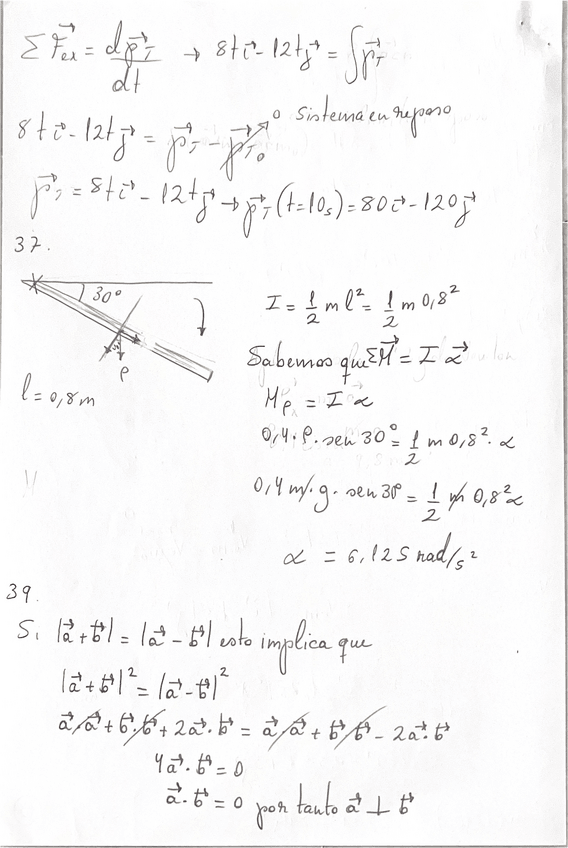 Σ F⃗ex = dp⃗T/dt → 8t i⃗ - 12t j⃗ = ∫p⃗T
8t i⃗ - 12t j⃗ = p⃗T - p⃗To 0 Sistema en reposo
p⃗T = 8t i⃗ - 12t j⃗ → p⃗T (t=10s) = 80 i⃗ - 120 j⃗
37.
30°
P
l = 0,8 m
I = 1/2 m l² = 1/2 m 0,8²
Sabemos que ΣM⃗ = I α⃗
Mp = I α
0,4 · P · sen 30° = 1/2 m 0,8² · α
0,4 m · g · sen 30° = 1/2 m 0,8² α
α = 6,125 rad/s²
39.
Si |a⃗ + b⃗| = |a⃗ - b⃗| esto implica que
|a⃗ + b⃗|² = |a⃗ - b⃗|²
a⃗·a⃗ + b⃗·b⃗ + 2a⃗·b⃗ = a⃗·a⃗ + b⃗·b⃗ - 2a⃗·b⃗
4a⃗·b⃗ = 0
a⃗·b⃗ = 0 por tanto a⃗ ⊥ b⃗